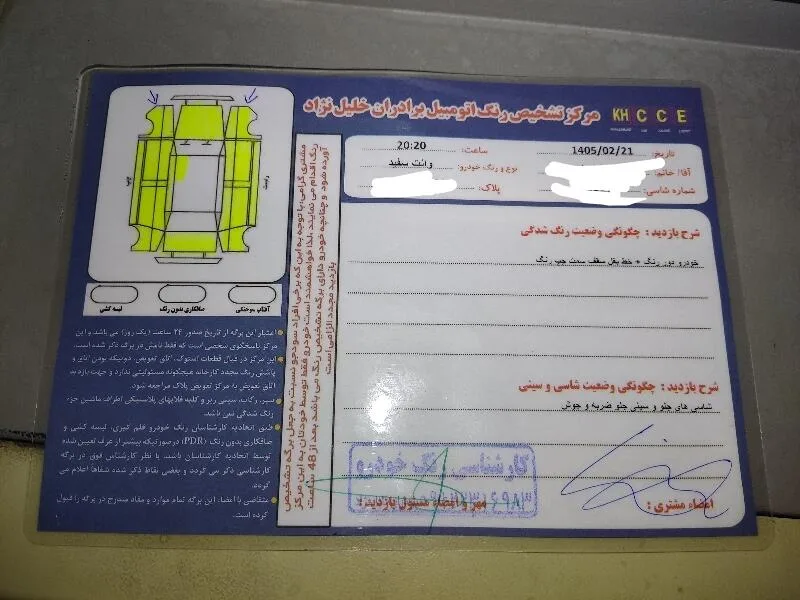 مرکز تشخیص رنگ اتومبیل برادران خلیل نژاد
KH C C E
تاریخ: 1405/02/21
ساعت: 20:20
آقا/ خانم:
نوع و رنگ خودرو: وانت سفید
شماره شاسی:
پلاک:
شرح بازدید : چگونگی وضعیت رنگ شدگی
خودرو دور رنگ + خط بغل سقف سمت چپ رنگ
شرح بازدید : چگونگی وضعیت شاسی و سینی
شاسی های جلو و سینی جلو ضربه و جوش
کارشناسی رنگ خودرو
مهر و امضاء مسئول بازدیدند
امضاء مشتری :
چپ
راست
آفتاب سوختگی
صافکاری بدون رنگ
لیسه کشی
مشتری گرامی، با توجه به این که برخی افراد سودجو نسبت به جعل برگه تشخیص
رنگ اقدام می نمایند، لذا خواهشمند است خودرو فقط توسط خودتان به این مرکز
آورده شود و چنانچه خودرو دارای برگه تشخیص رنگ می باشد بعد از 48 ساعت
بازدید مجدد الزامی است
اعتبار این برگه از تاریخ صدور ۲۴ ساعت (یک روز) می باشد و این
مرکز پاسخگوی شخصی است که فقط نامش در برگه ذکر شده است.
این مرکز در قبال قطعات استوک، اتاق تعویض، دوتیکه بودن اتاق و
پاشش رنگ مجدد کارخانه هیچگونه مسئولیتی ندارد و جهت بازدید
اتاق تعویض به مرکز تعویض پلاک مراجعه شود.
سپر، رکاب، سینی زیر و کلیه قابهای پلاستیکی اطراف ماشین جزء
رنگ شدگی نمی باشد.
طبق اتحادیه کارشناسان رنگ خودرو قلم گیری، لیسه کشی و
صافکاری بدون رنگ (PDR) درصورتیکه بیشتر از عرف تعیین شده
توسط اتحادیه کارشناسان باشد، با نظر کارشناس فوق در برگه
کارشناسی ذکر می گردد و بعضی نقاط ذکر شده شفاهاً اعلام می
گردد.
متقاضی با امضاء این برگه تمام موارد و مفاد مندرج در برگه را قبول
کرده است.